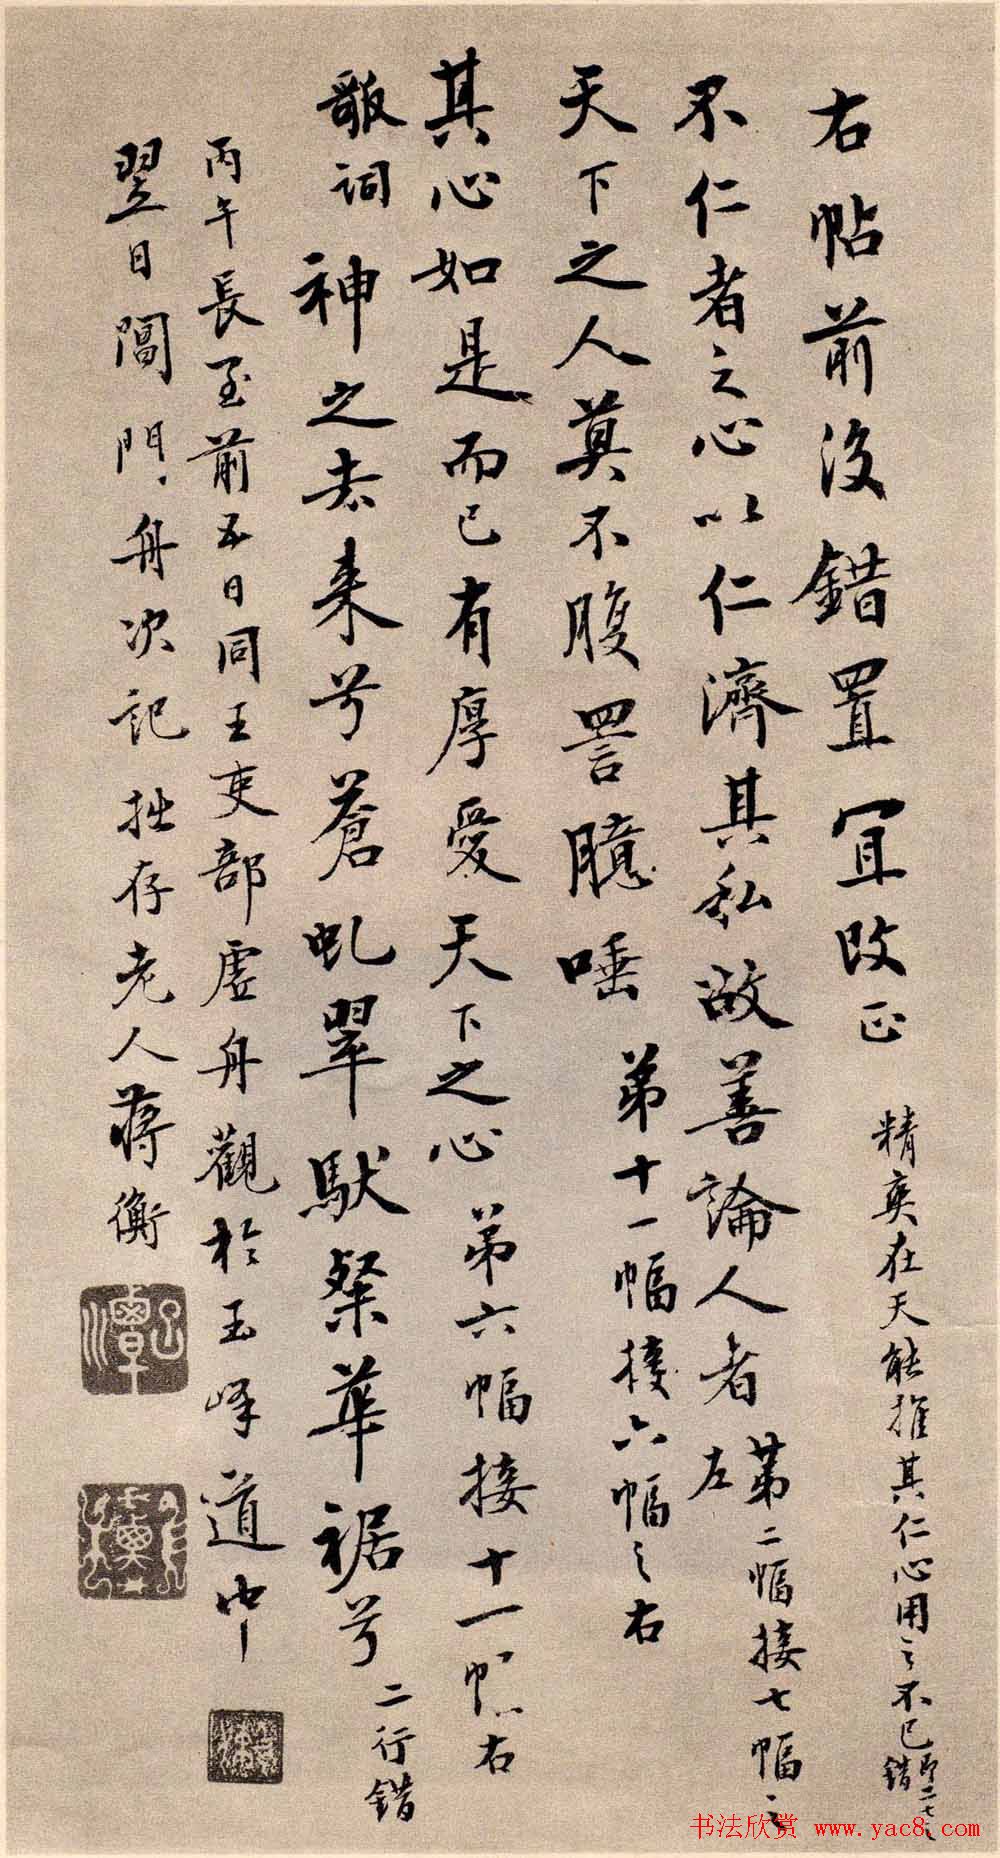 右帖前後錯置宜改正
精爽在天能推其仁心用之不已
錯
不仁者之心以仁濟其私故善論人者
第二幅接七幅之
左
天下之人莫不腹詈臆唾
第十一幅接六幅之右
其心如是而已有厚愛天下之心
第六幅接十一幅右
歌詞神之去來兮蒼虬翠駃粲華裾兮
二行錯
丙午長至前五日同王吏部虛舟觀於玉峰道中
翌日閶門舟次記拙存老人蔣衡
书法欣赏 www.yac8.com